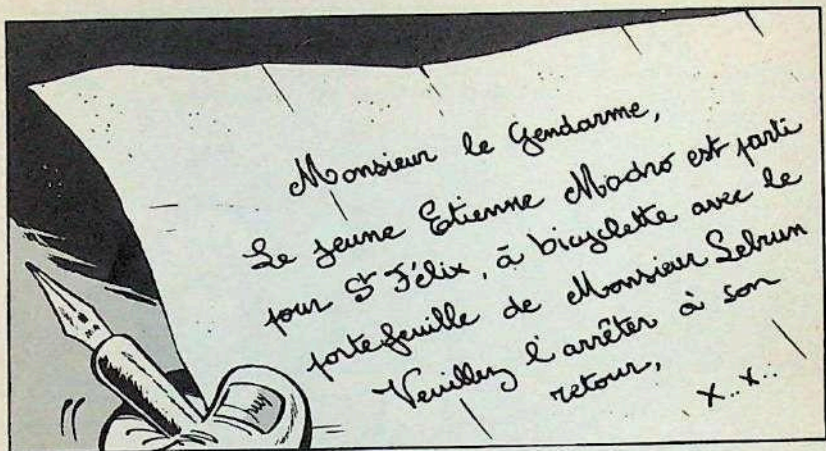 Monsieur le Gendarme,
Le jeune Etienne Madro est parti
pour St Félix, à bicyclette avec le
portefeuille de Monsieur Lebrun
Veuillez l'arrêter à son
retour,
X..X..